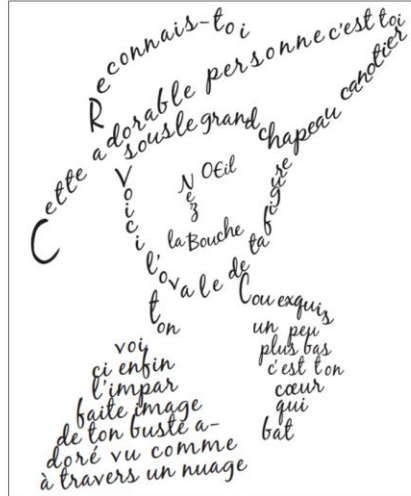 Reconnais-toi
Cette adorable personne c'est toi
sous le grand chapeau canotier
Oeil
Nez
la Bouche
Voici l'ovale de ta figure
ton
Cou exquis
voi
ci enfin
l'impar
faite image
de ton buste a-
doré vu comme
à travers un nuage
un peu
plus bas
c'est ton
cœur
qui
bat